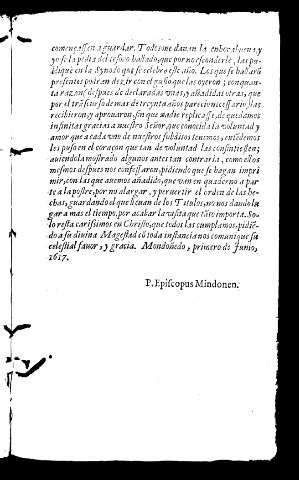 començassen a guardar. Todos me dauan la enhorabuena, y
yo se la pedia del tesoro hallado, que por no esconderle, las pu-
bliquè en la Synodo que se celebrò este año. Los que se hallarõ
presentes podran dezir con el gusto que las oyeron; con quan-
ta razon, despues de declaradas vnas, y añadidas otras, que
por el trãscurso de mas de treynta años parecio necessario, las
recibieron, y aprouaron, sin que nadie replicasse, de que damos
infinitas gracias a nuestro Señor, que conocida la voluntad y
amor que a cada vno de nuestros subditos tenemos, entẽdemos
les puso en el coraçon que tan de voluntad las consintiessen;
auiendola mostrado algunos antes tan contraria, como ellos
mesmos despues nos confessaron, pidiendo que se hagan impri
mir, con las que auemos añadido, que van en quaderno a par-
te a la postre, por no alargar, y peruertir el orden de las he-
chas, guardando el que lleuan de los Titulos, no nos dando lu
gar a mas el tiempo, por acabar la visita que tãto importa. So-
lo resta carissimos en Christo, que todos las cumplamos, pidiẽ-
do a su diuina Magestad cõ toda instancia nos comunique su
celestial fauor, y gracia. Mondoñedo, primero de Junio,
1617.
P. Episcopus Mindonen.